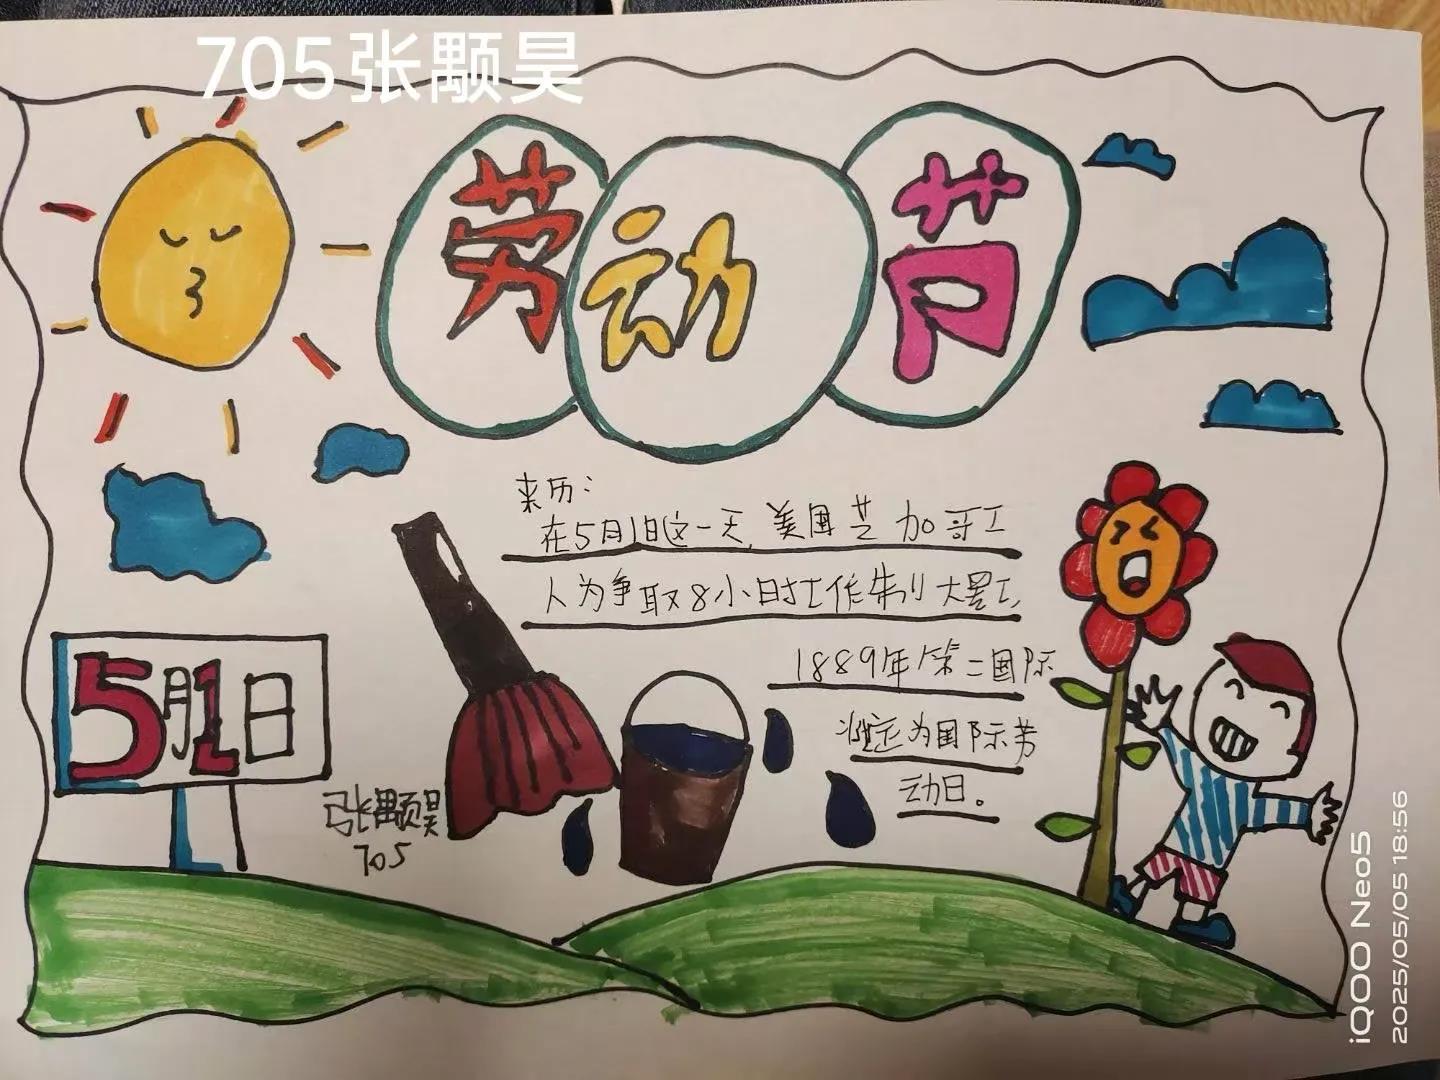 705张颗昊
劳动节
来历：
在5月1日这一天,美国芝加哥工
人为争取8小时工作制大罢工,
1889年第二国际
为国际劳
动日。
5月1日
张颗昊
705
iQOO Neo5
2025/05/05 18:56